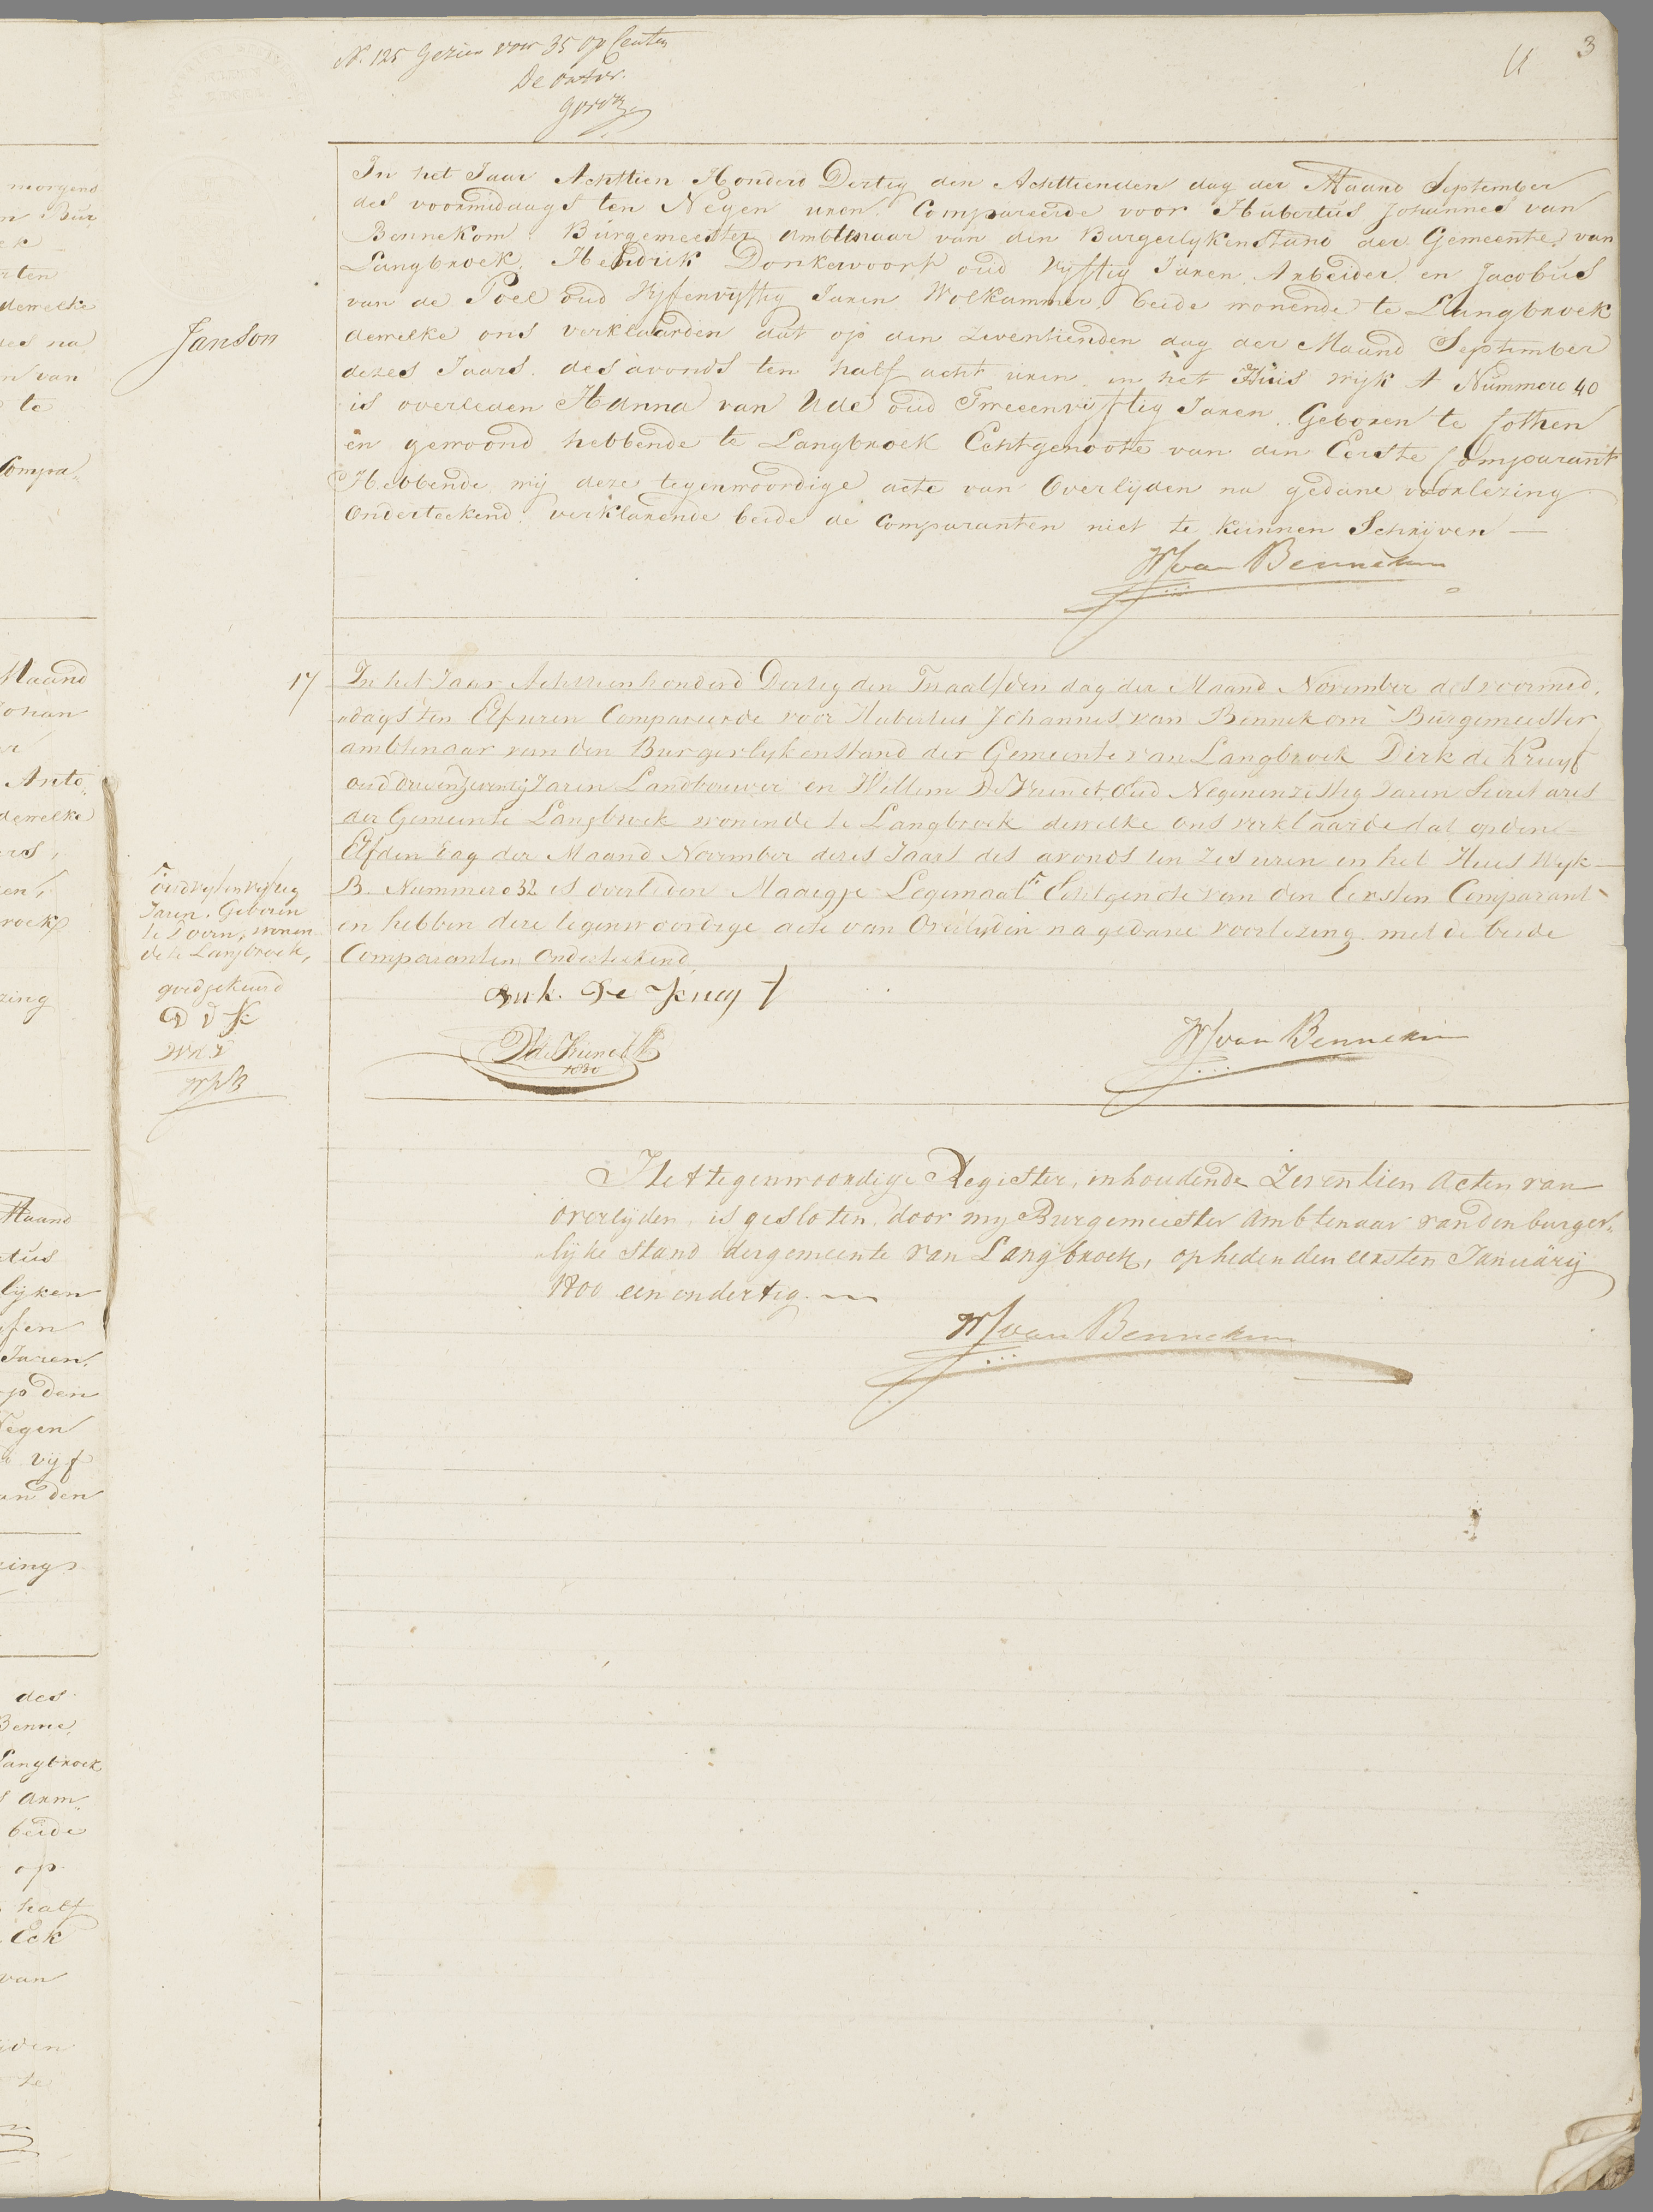 No. 125 Gezien voor 35 op Centen
De ontvr.
3
In het Jaar Achttien Honderd Dertig den Achttienden dag der Maand September
des voormiddags ten Negen uren. Compareerde voor Hubertus Johannes van
Bennekom. Burgemeester ambtenaar van den Burgerlyken Stand der Gemeente van
Langbroek. Hendrik Donkervoort oud Vyftig Jaren Arbeider en Jacobus
van de Poel oud Vyfenvyftig Jaren Wolkammer beide wonende te Langbroek
Janson
dewelke ons verklaarden dat op den zeventienden dag der Maand September
dezes Jaars. des avonds ten half acht uren in het Huis Wijk A Nummero 40
is overleden Hanna van Ude oud Tweeenvijftig Jaren. Geboren te Cothen
en gewoond hebbende te Langbroek Echtgenoote van den Eerste Comparant
Hebbende wij deze tegenwoordige acte van Overlijden na gedane voorlezing
Onderteekend. verklarende beide de Comparanten niet te kunnen Schrijven —
HJ van Bennekom
17
In het Jaar Achttienhonderd Dertig den Twaalfden dag der Maand November des voormid,
„dags ten Elf uren Compareerde voor Hubertus Johannes van Bennekom Burgemeester
ambtenaar van den Burgerlyken Stand der Gemeente van Langbroek Dirk de Kruyf
oud drieenzeventig Jaren Landbouwer en Willem De Kruif oud Negenenzestig Jaren Secretaris
der Gemeente Langbroek wonende te Langbroek dewelke ons verklaarde dat op den
Elfden Dag der Maand November dezes Jaars des avonds ten Zes uren in het Huis Wyk
B. Nummero 32 is overleden Maregje Legemaat ⌈ Echtgenote van den Eersten Comparant
en hebben deze tegenwoordige acte van Overlyden na gedane voorlezing met de beide
Comparanten Onderteekend
⌈ oud vyfenvyftig
Jaren. Geboren
te Doorn, wonen
de te Langbroek,
goedgekeurd
D d K
HJvB
Dirk De Kruyf
1830
HJ van Bennekom
Het tegenwoordige Register, inhoudende Zeventien Acten van
overlyden, is gesloten door my Burgemeester Ambtenaar van den burger„
lyke stand der gemeente van Langbroek, op heden den eersten Januärij
1800 een en dertig.
HJ van Bennekom